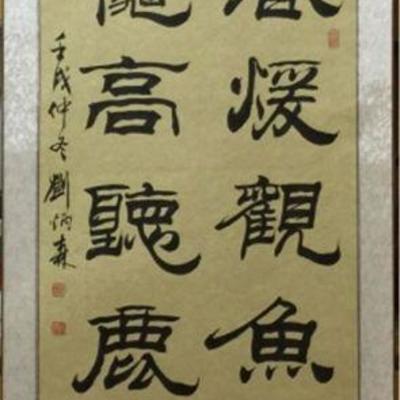 煖觀魚
高聽鹿
壬戌仲冬劉炳森